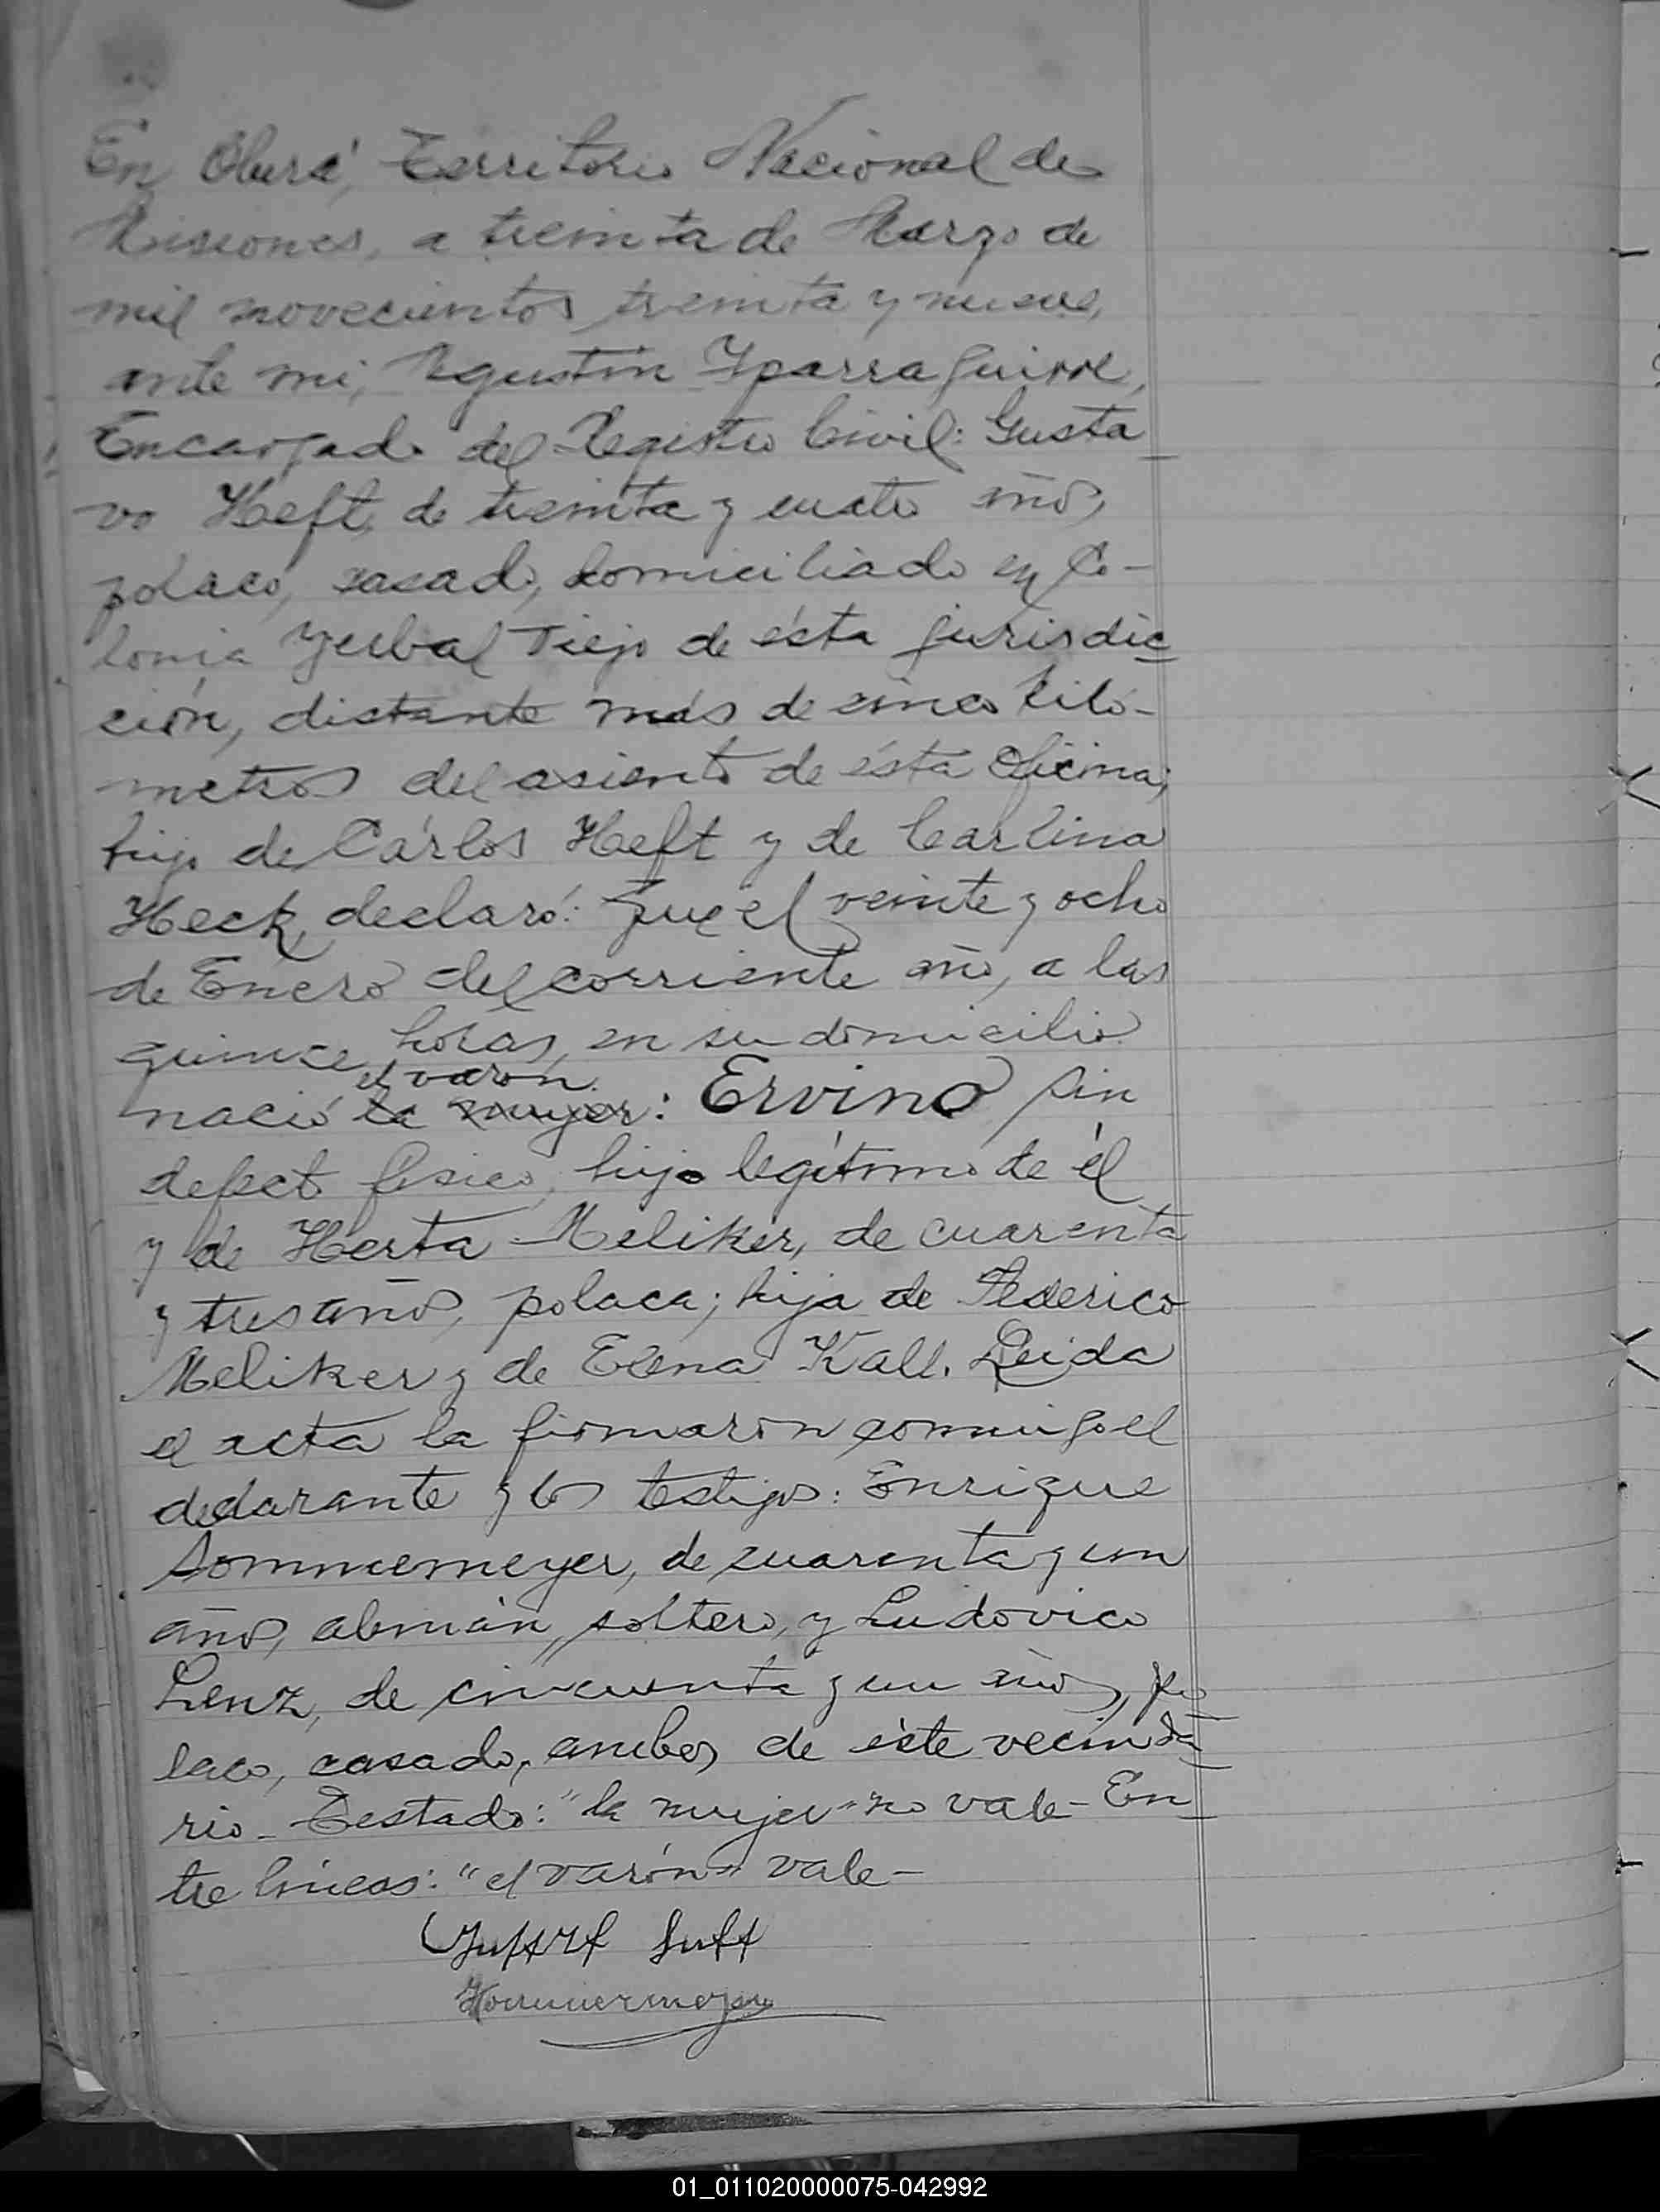 En Oberá, Territorio Nacional de
Misiones, a treinta de Marzo de
mil novecientos treinta y nueve,
ante mi, Agustín Yparraguirre,
Encargado del Registro Civil: Gusta
vo Heft, de treinta y cuatro años,
polaco, casado, domiciliado en Co-
lonia Yerbal Viejo de ésta jurisdic_
ción, distante más de cinco kiló-
metros del asiento de ésta Oficina;
hijo de Cárlos Heft y de Carlina
Heck, declaró: Que el veinte y ocho
de Enero del corriente año, a las
quince horas, en su domicilio
el varón
nació la mujer: Ervino sin
defecto físico, hijo legítimo de él
y de Herta Meliker, de cuarenta
y tres años, polaca; hija de Federico
Meliker y de Elena Kall. Leida
el acta la firmaron conmigo el
declarante y los testigos: Enrique
Sommermeyer, de cuarenta y un
años, alemán, soltero, y Ludovico
Lenz, de cincuenta y un años, po
laco, casado, ambos de éste vecinda_
rio_ Testado: "la mujer" no vale- En_
tre líneas: "el varón" vale-
01_011020000075-042992